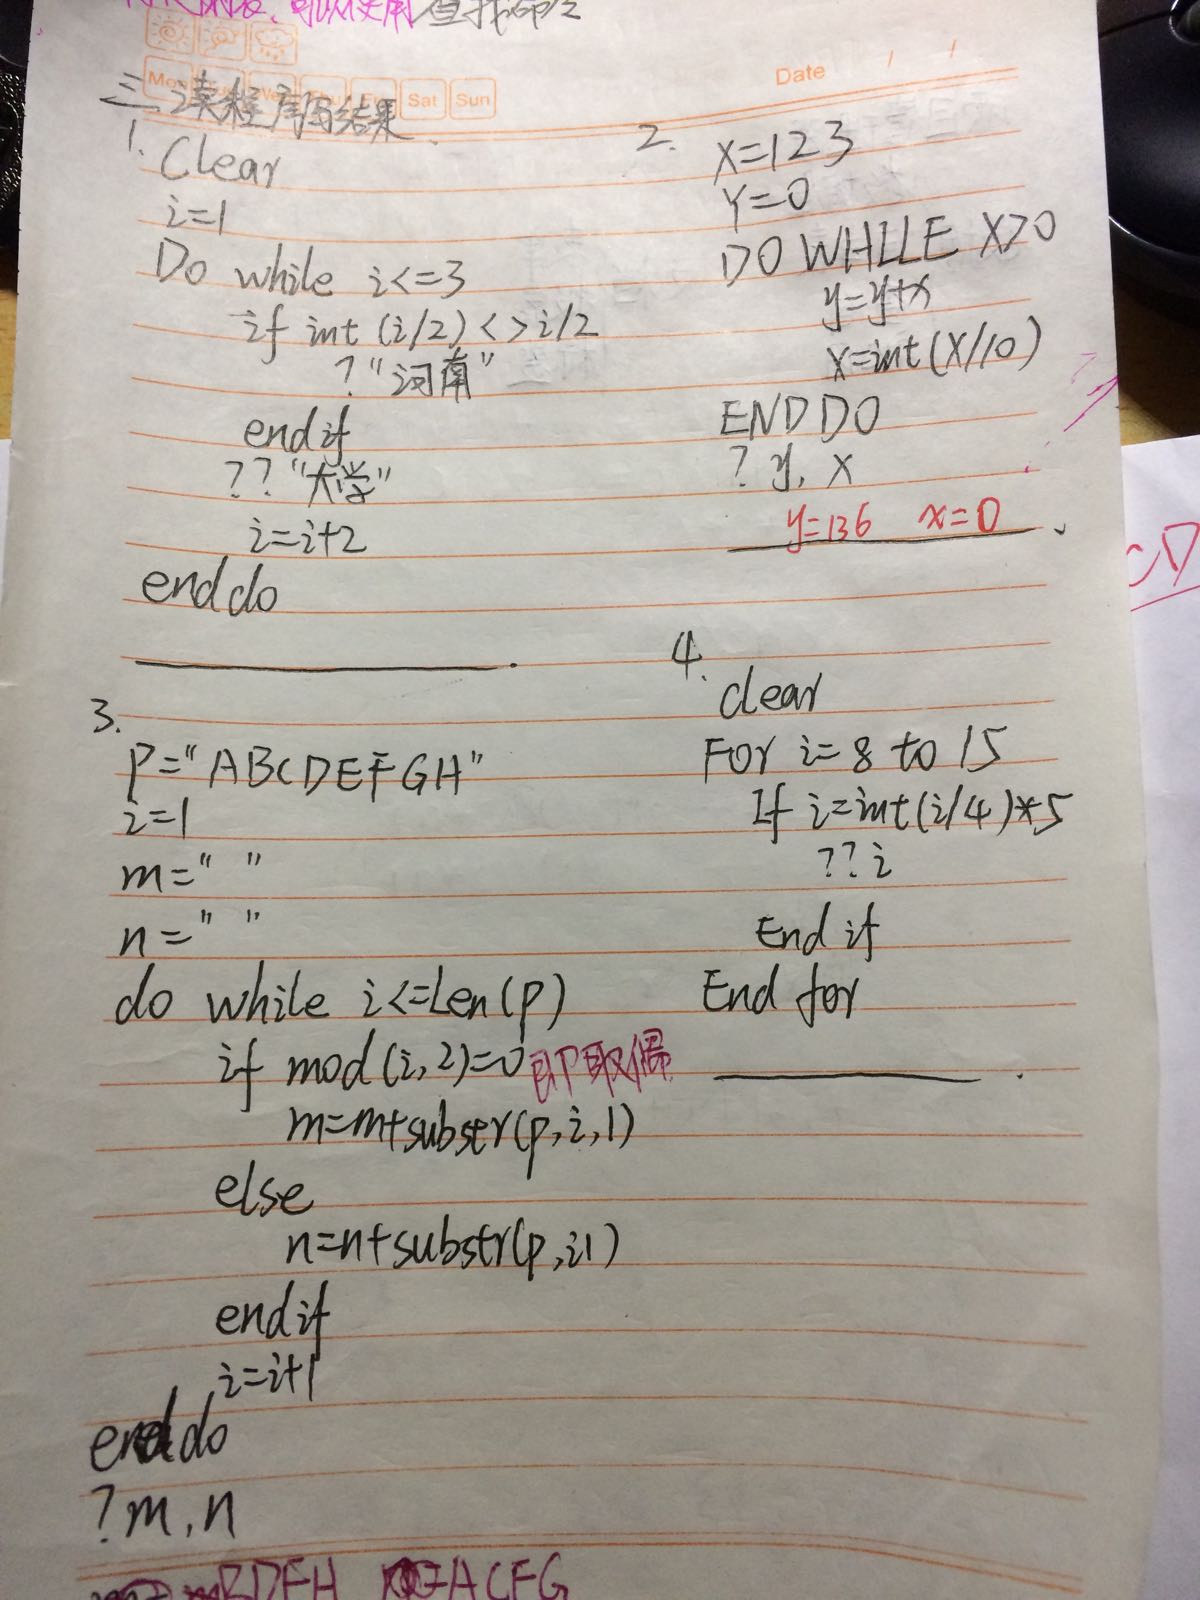 可以使用查找命令
Date / /
Sat Sun
三、读程序写结果
1. Clear
i=1
Do while i<=3
if int (i/2) < > i/2
? "河南"
endif
?? "大学"
i=i+2
enddo
2. X=123
Y=0
DO WHILE X>0
y=y+x
x=int(X/10)
ENDDO
? y, x
y=136 x=0
3.
P="ABCDEFGH"
i=1
m=" "
n=" "
do while i<=Len(p)
if mod(i,2)=0 即取偶
m=m+substr(p,i,1)
else
n=n+substr(p,i1)
endif
i=i+1
enddo
?m,n
BDFH ACFG
4.
clear
For i=8 to 15
If i=int(i/4)*5
??i
End if
End for
CD